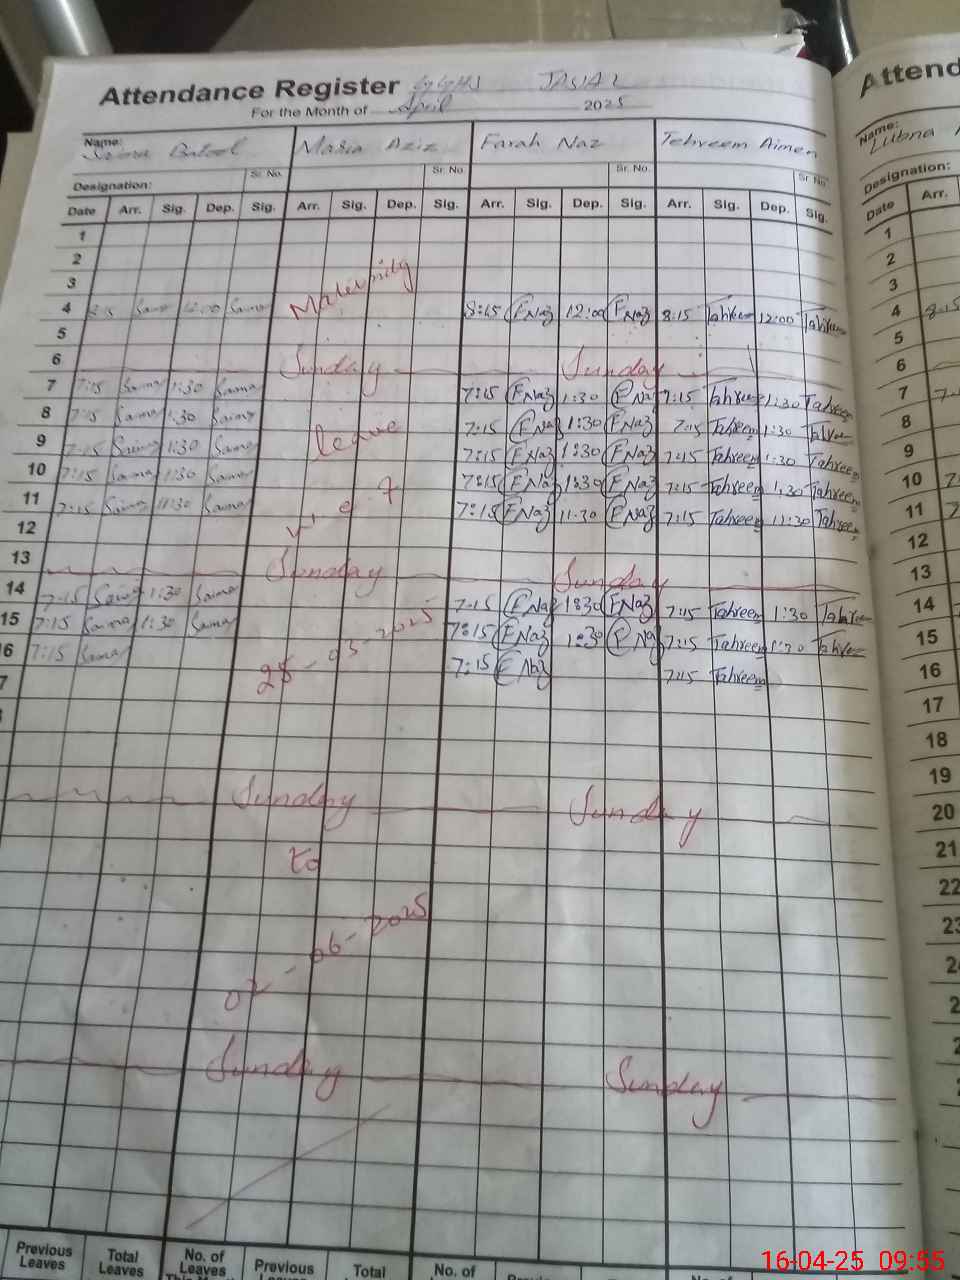 Attendance Register GGHS JASIAL
For the Month of April 2025
Name: Saima Batool Maria Aziz Farah Naz Tehreem Aimen
Designation: Sr. No. Sr. No. Sr. No. Sr. No.
Date Arr. Sig. Dep. Sig. Arr. Sig. Dep. Sig. Arr. Sig. Dep. Sig. Arr. Sig. Dep. Sig.
1
2
3
Maternity
4 8:15 Saima 12:00 Saima 8:15 FNaz 12:00 FNaz 8:15 Tahreem 12:00 Tahreem
5
6 Sunday Sunday
7 7:15 Saima 1:30 Saima 7:15 FNaz 1:30 FNaz 7:15 Tahreem 1:30 Tahreem
8 7:15 Saima 1:30 Saima leave 7:15 FNaz 1:30 FNaz 7:15 Tahreem 1:30 Tahreem
9 7:15 Saima 1:30 Saima 7:15 FNaz 1:30 FNaz 7:15 Tahreem 1:30 Tahreem
10 7:15 Saima 1:30 Saima 7:15 FNaz 1:30 FNaz 7:15 Tahreem 1:30 Tahreem
11 7:15 Saima 11:30 Saima w e f 7:15 FNaz 11:30 FNaz 7:15 Tahreem 11:30 Tahreem
12
13 Sunday Sunday
14 7:15 Saima 1:30 Saima 7:15 FNaz 1:30 FNaz 7:15 Tahreem 1:30 Tahreem
15 7:15 Saima 1:30 Saima 7:15 FNaz 1:30 FNaz 7:15 Tahreem 1:30 Tahreem
16 7:15 Saima 7:15 FNaz 7:15 Tahreem
28-03-2025
7
Sunday Sunday
to
02-06-2025
Sunday Sunday
Previous Leaves Total Leaves No. of Leaves This Month Previous Total No. of
Attend
Name: Lubna
Designation:
Date Arr.
1
2
3
4 8:15
5
6
7
8
9
10
11
12
13
14
15
16
17
18
19
20
21
22
23
16-04-25 09:55